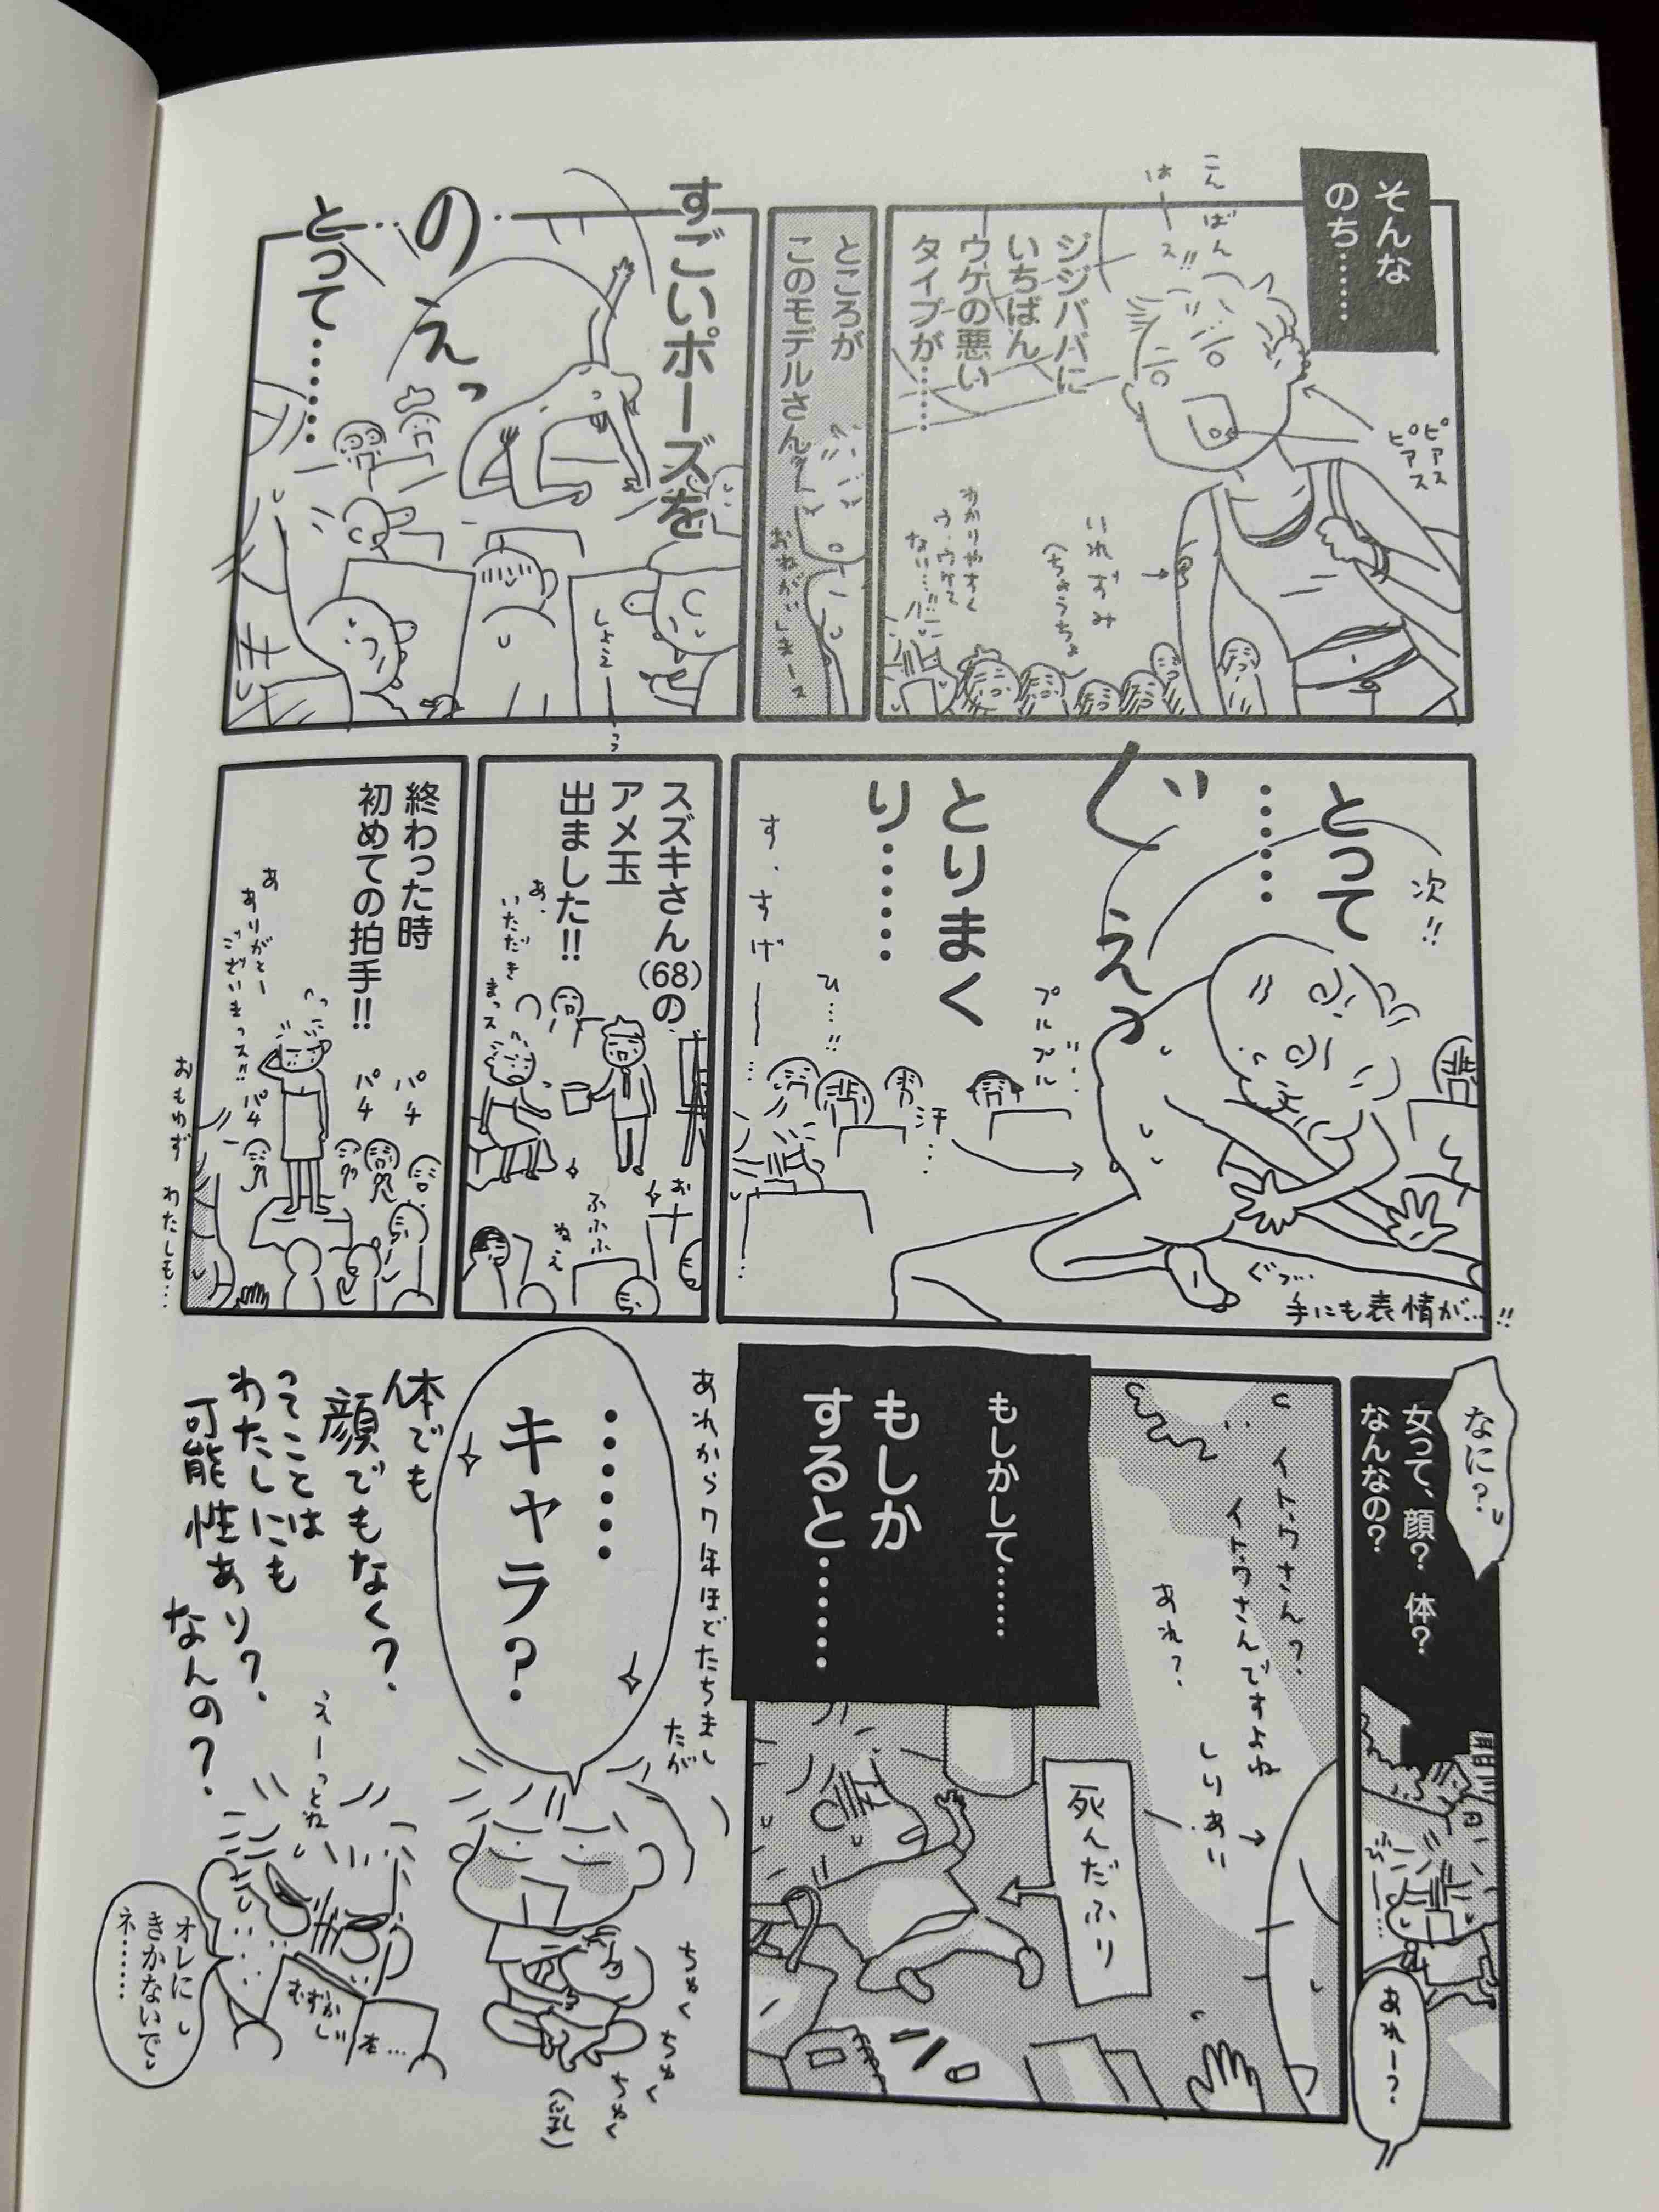 そんな
のち……
こんばん
はース!!
ピアス
ピアス
ジジババに
いちばん
ウケの悪い
タイプが……
いれずみ
(ちょうちょ
わかりやすく
ウ、ウケて
ない…!!
ところが
このモデルさん
おねがいしまース
すごいポーズを
の
えっ
とって……
しょえーっ
次!!
とって
……
ぐ
えっ
とりまく
り……
プルプル…
汗…
ひ…!!
す、すげーー……
ぐっ…
手にも表情が…!!
スズキさん(68)の
アメ玉
出ました!!
あ、
いただき
まっス
ふふふ
ねえ
お
終わった時
初めての拍手!!
あ
ありがとー
ございまっス!!
パチ
パチ
パチ
おもわず わたしも…
なに?
女って、顔? 体?
なんなの?
あれー?
イトウさん?
イトウさんですよね
あれ?
しりあい
もしかして……
もしか
すると……
死んだふり
あれから7年ほどたちまし
たが
……
キャラ?
体でも
顔でもなく?
ってことは
わたしにも
可能性あり?
なんの?
えーっとね
オレに
きかないで
ネ……
むずかしい
本…
ちゅく
ちゅく
ちゅく
(乳)